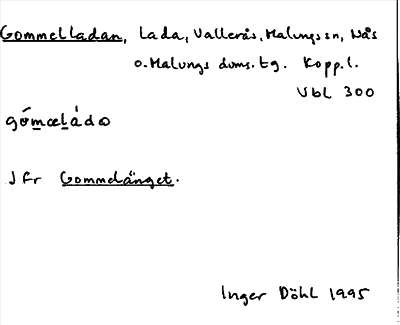 Gommelladan, Lada, Vallerås, Malungs sn, Nås
o. Malungs doms. tg. Kopp. l.
Ubl 300
gómœládo
Jfr Gommelänget.
Inger Döhl 1995